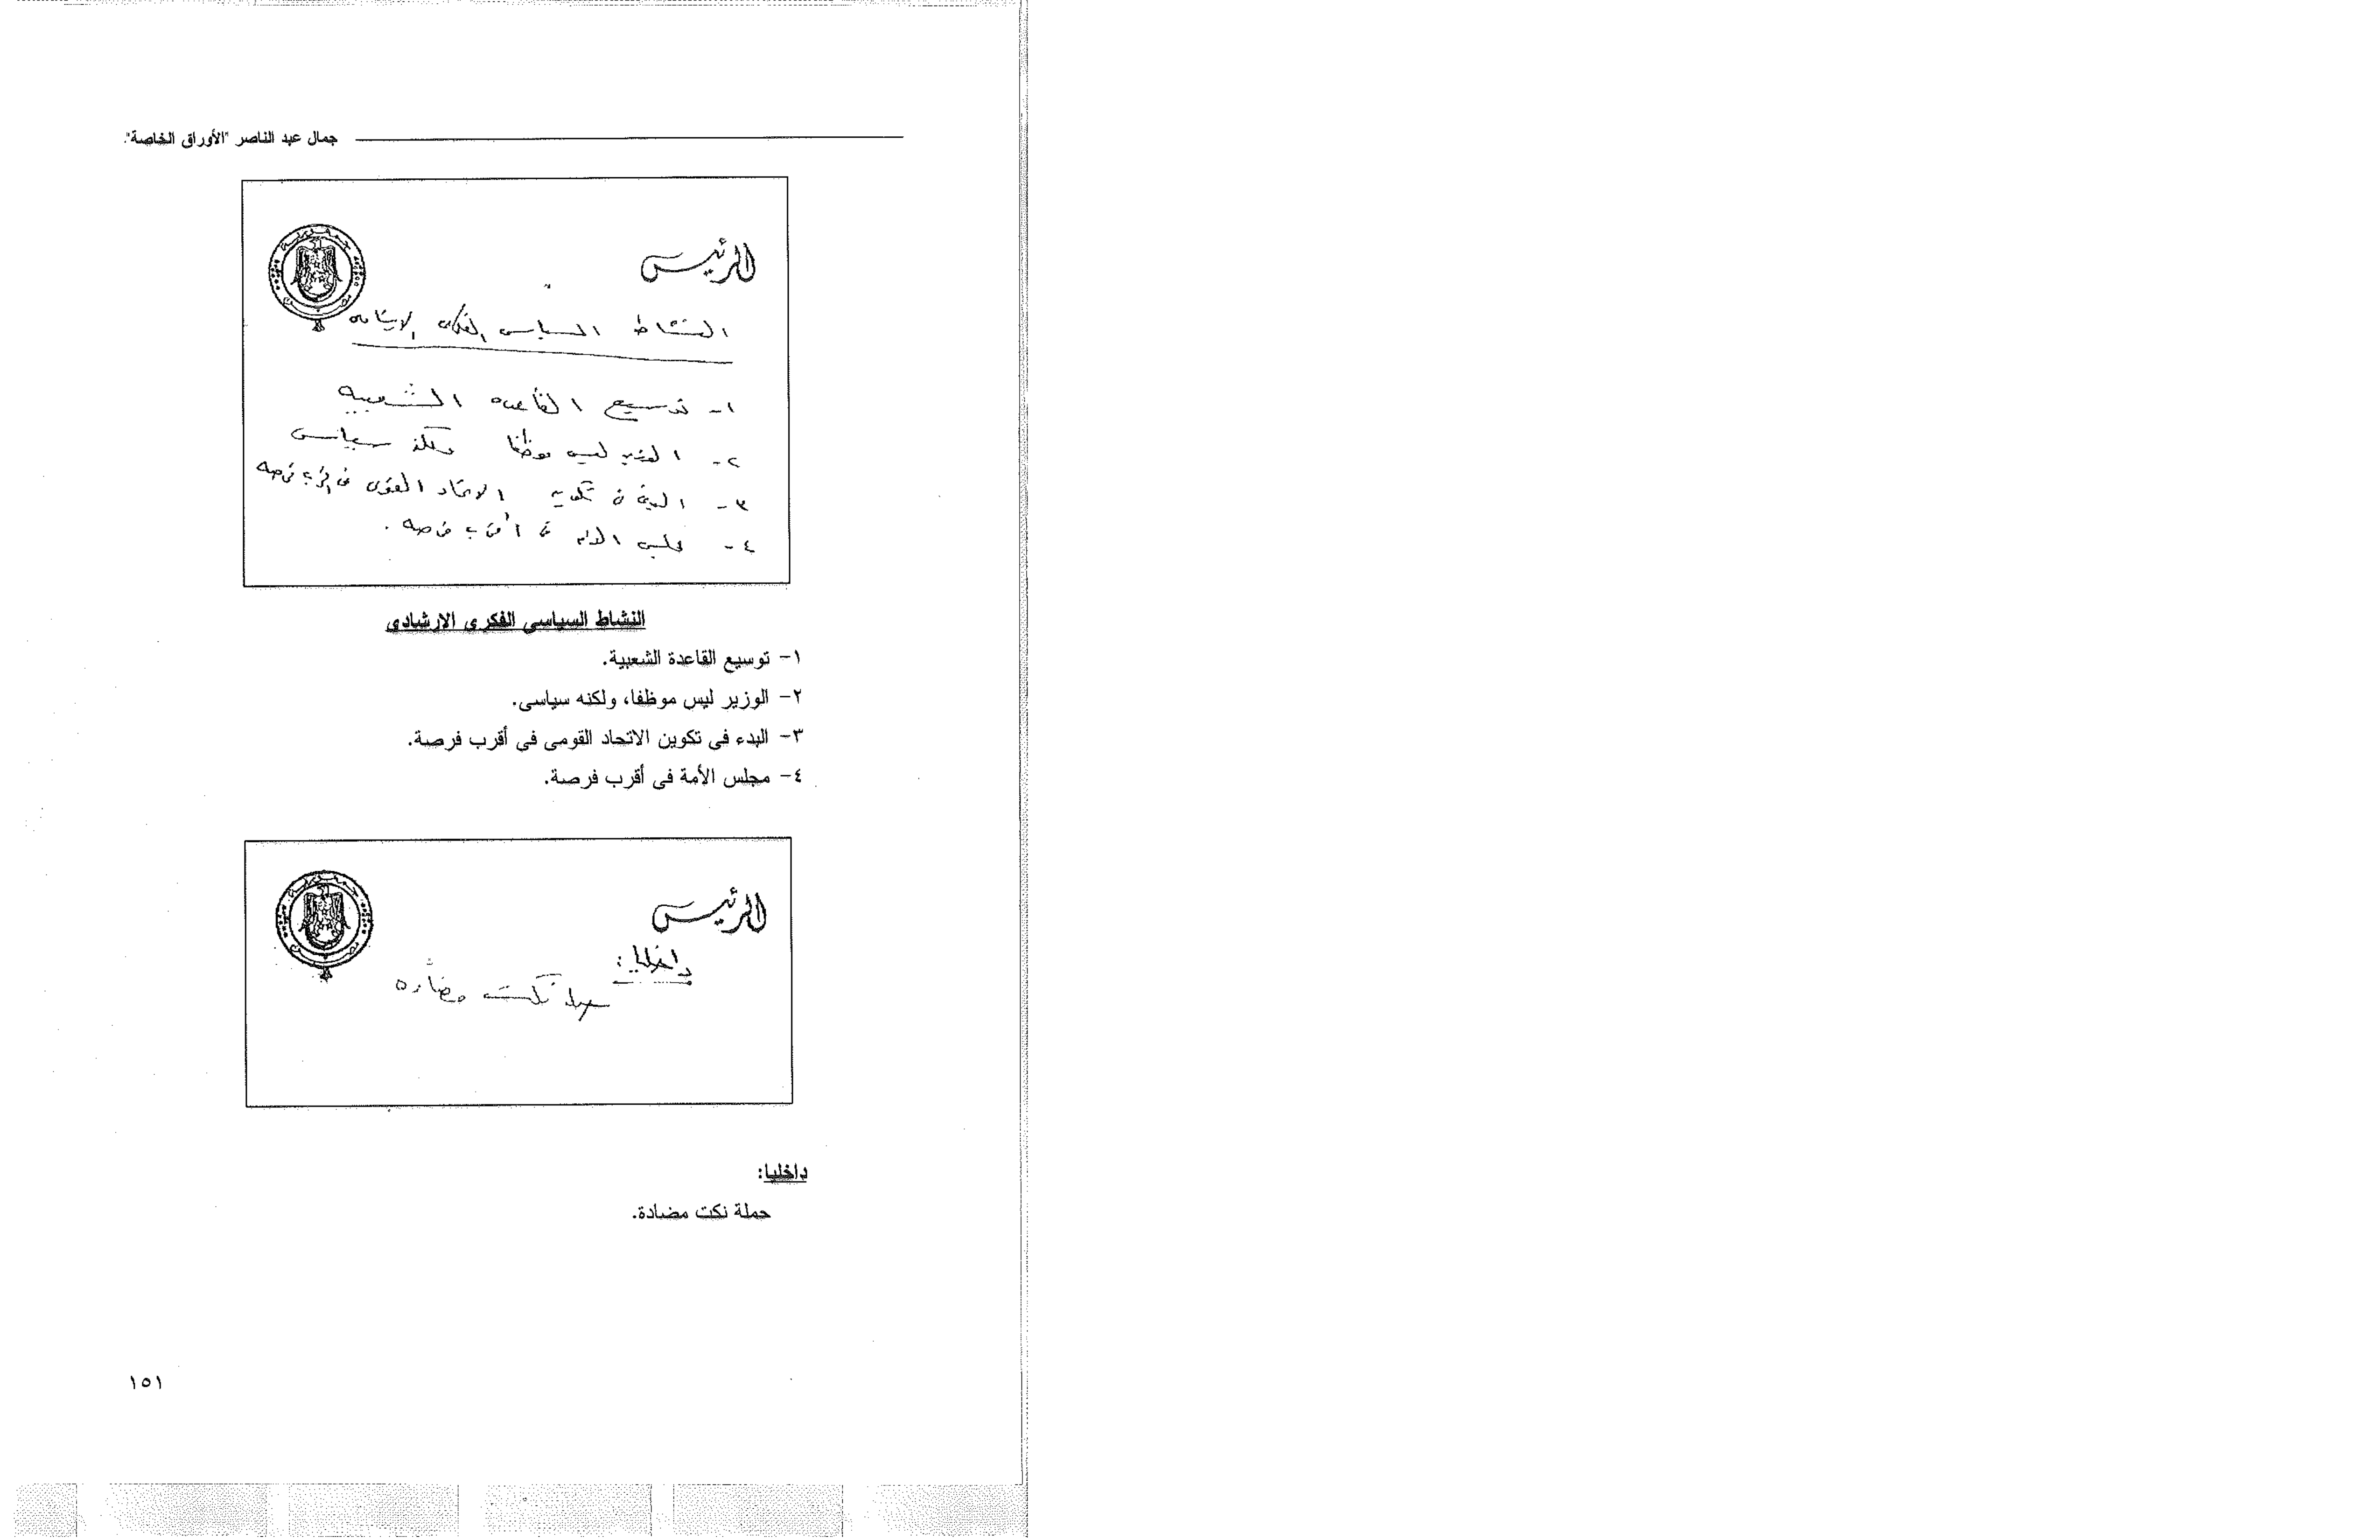 جمال عبد الناصر "الأوراق الخاصة".
الرئيس
النشاط السياسى الفكرى الارشادى
١- توسيع القاعده الشعبيه
٢- الوزير ليس موظفا ولكنه سياسى
٣- البدء فى تكوين الاتحاد القومى فى اقرب فرصه
٤- مجلس الامه فى أقرب فرصه .
النشاط السياسى الفكرى الارشادى
١- توسيع القاعدة الشعبية.
٢- الوزير ليس موظفا، ولكنه سياسى.
٣- البدء فى تكوين الاتحاد القومى فى أقرب فرصة.
٤- مجلس الأمة فى أقرب فرصة.
الرئيس
داخليا :
حملة نكت مضاده
داخليا:
حملة نكت مضادة.
١٥١